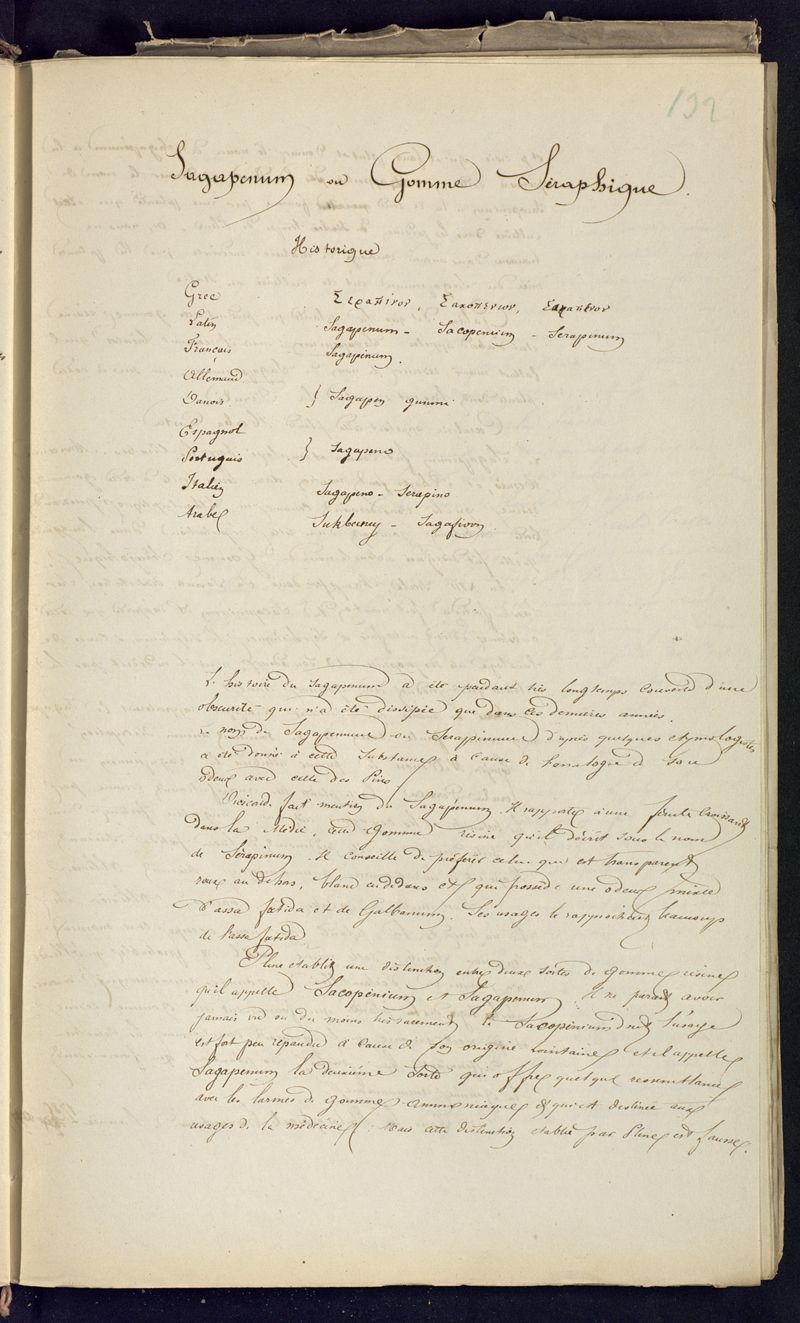 192
Sagapenum ou Gomme Séraphique.
Historique
Grec Σεραπίνον, Σακοπενιον,
Latin Sagapenum - Sacopenium - Serapinum
Français Sagapinum.
Allemand
Danois } Sagapen gummi
Espagnol
Portuguais } Sagapeno
Italien Sagapeno - Serapino
Arabe
L'histoire du Sagapenum a été pendant très longtemps couverte d'une
obscurité qui n'a été dissipée que dans ces dernières années.
Le nom de Sagapenum ou Serapinum d'après quelques etymologistes
a été donné à cette substance à cause de l'analogie de son
odeur avec celle des Pins
fait mention du Sagapenum. Il rapporte à une ferule croissant
dans la Medie, une gomme résine qu'il décrit sous le nom
de Sérapinum. Il conseille de préférer celui qui est transparent
roux au dehors, blanc en dedans et qui possède une odeur mixte
d'assa fœtida et de Galbanum. Ses usages le rapprochent beaucoup
de l'assa fœtida
Pline etablit une distinction entre deux sortes de gommes résines
qu'il appelle Sacopenium et Sagapenum. Il ne parait avoir
jamais vu ou du moins très rarement le Sacopenium dont l'usage
est fort peu répandu à cause de son origine lointaine et il appelle
Sagapenum la deuxième sorte qui offre quelque ressemblance
avec les larmes de gomme ammoniaque et qui est destinée aux
usages de la médecine. Mais cette distinction etablie par Pline est fausse.